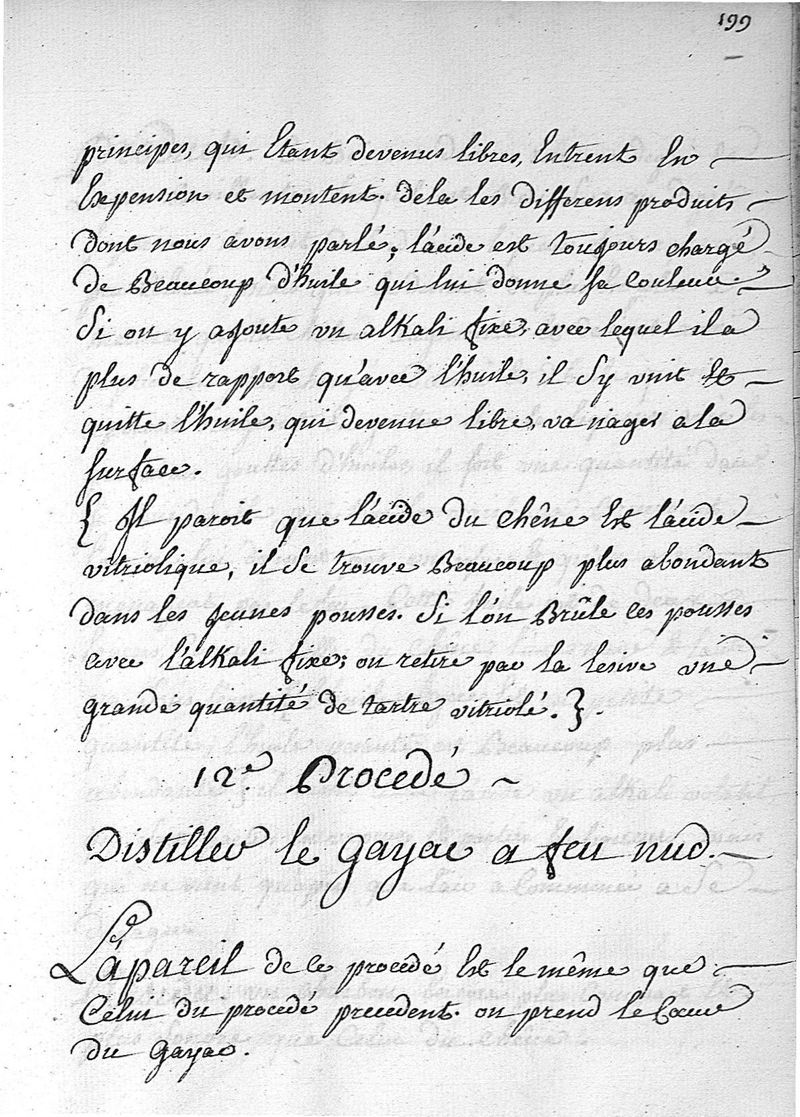 199
principes, qui Etant devenus libres, Entrent En
Expension et montent. dela les differens produits
dont nous avons parlé; l'acide est toujours chargé
de Beaucoup d'huile qui lui donne sa couleur.
Si on y ajoute un alkali fixe, avec lequel il a
plus de rapport qu'avec l'huile, il s'y unit Et
quitte l'huile, qui devenue libre, va nager a la
surface.
{ Il paroit que l'acide du chêne Est l'acide
vitriolique, il se trouve Beaucoup plus abondant
dans les jeunes pousses. Si l'on Brûle ces pousses
avec l'alkali fixe; on retire par la lesive une
grande quantité de tartre vitriolé. }.
12e Procedé
Distiller le gayac a feu nud.
L'apareil de ce procedé Est le même que
Celui du procedé precedent. on prend le Coeur
du gayac.